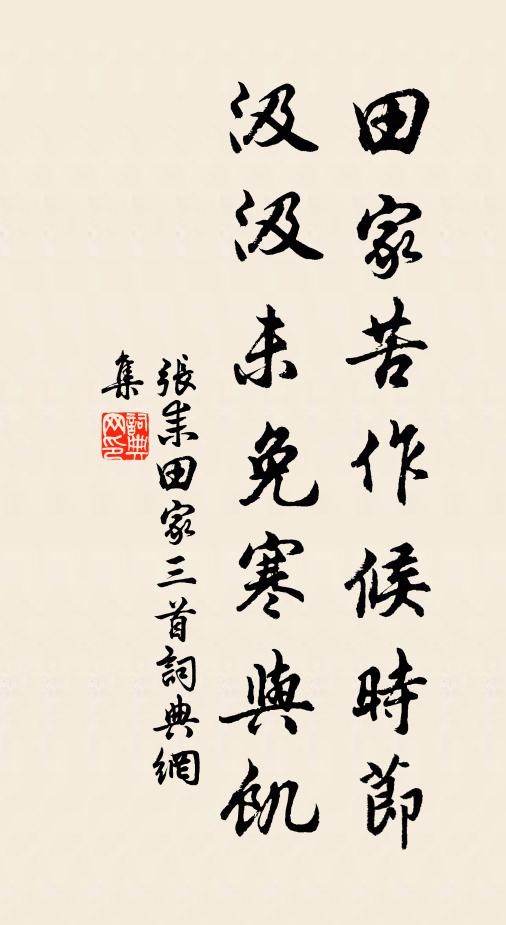 田家苦作候時節
汲汲未免寒與飢
張耒田家三首詞典網
集
詞典
网印